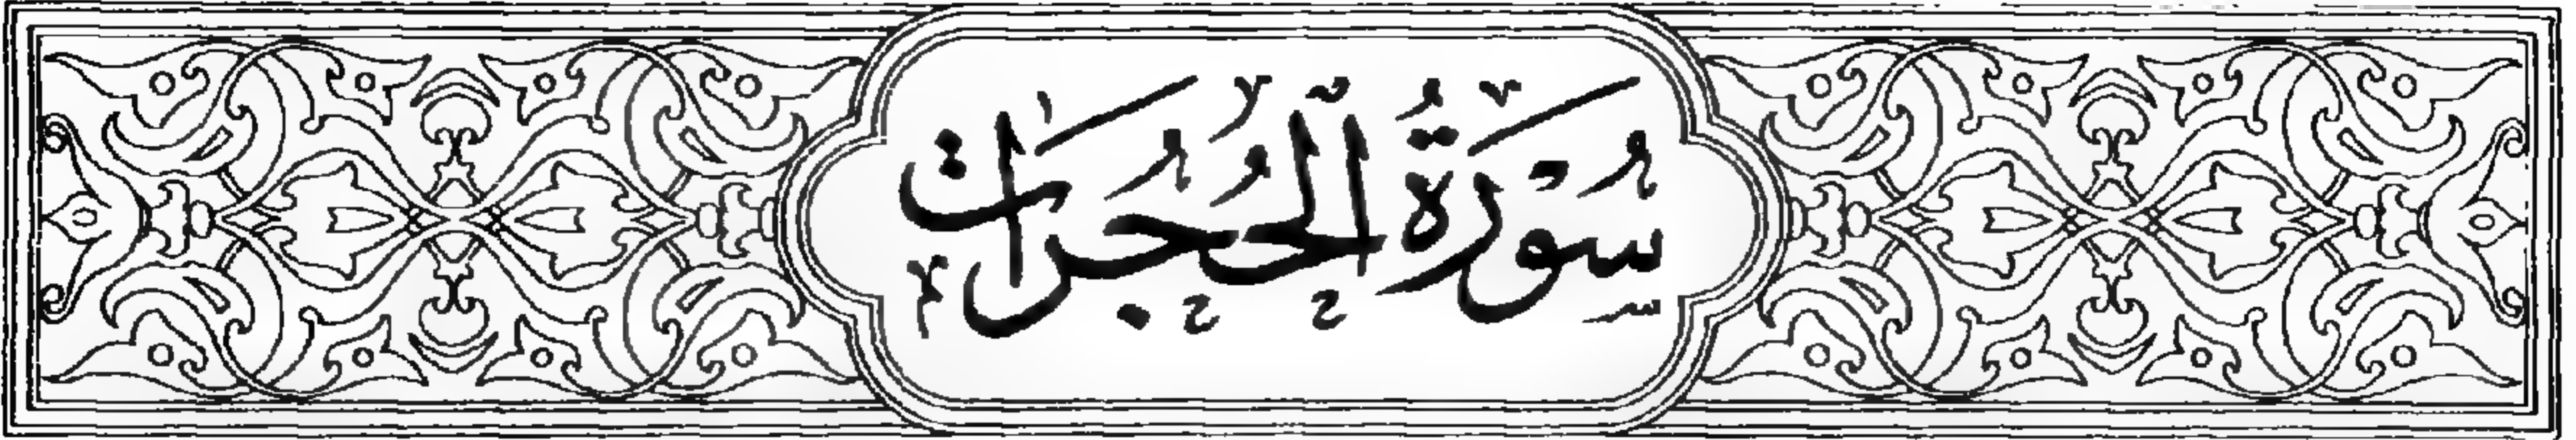 سُوْرَةُ الْحُجُرَات